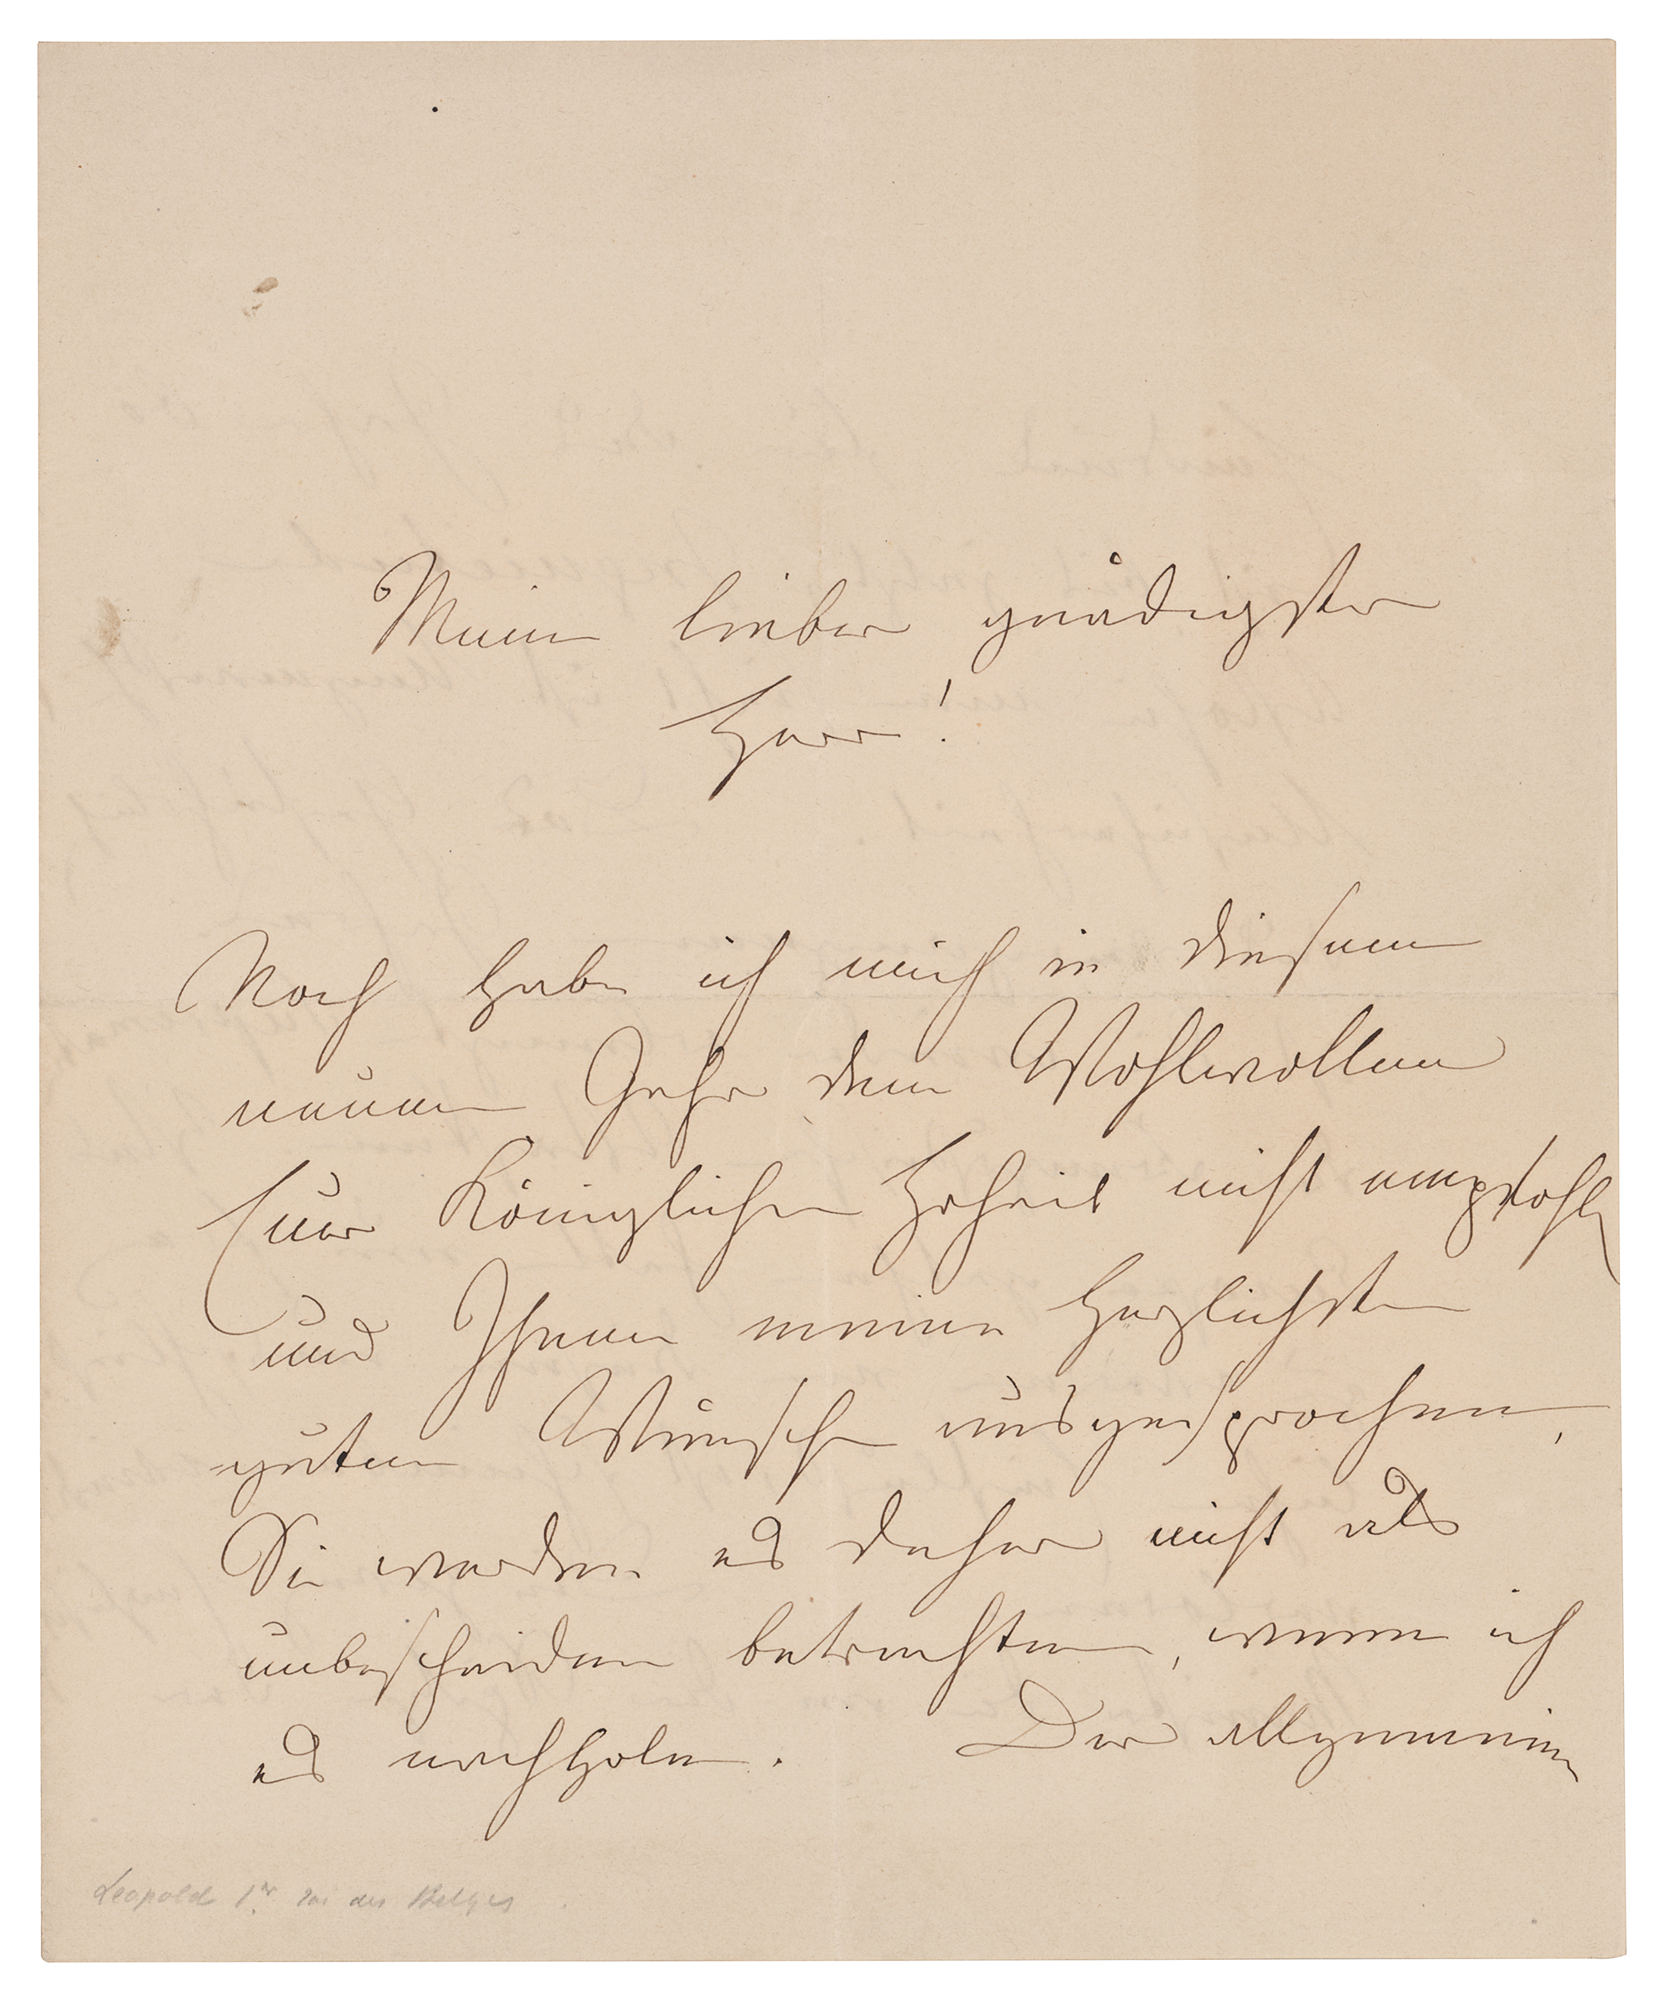 Mein lieber gnädigster
Herr!
Noch habe ich mich in diesem
neuen Jahr dem Wohlwollen
Euer Königlichen Hoheit nicht empfohlen
und Ihnen meine herzlichsten
guten Wünsche ausgesprochen,
Sie werden es daher nicht als
unbescheiden betrachten, wenn ich
es nachhole. Der allgemeinen
Leopold 1er roi des Belges